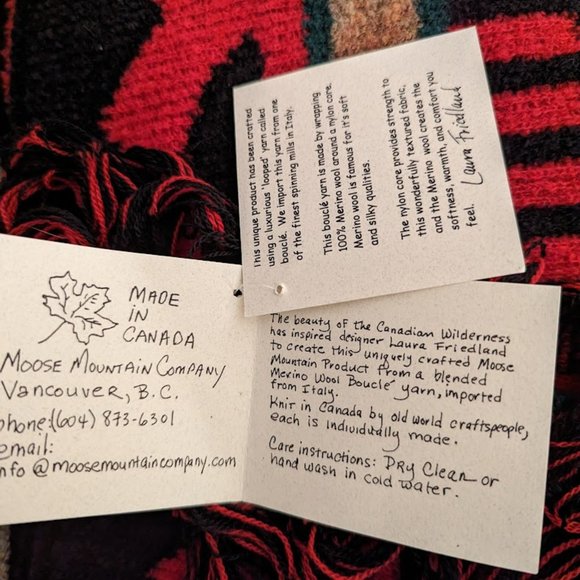 This unique product has been crafted
using a luxurious 'looped' yarn called
bouclé. We import this yarn from one
of the finest spinning mills in Italy.
This bouclé yarn is made by wrapping
100% Merino wool around a nylon core.
Merino wool is famous for it's soft
and silky qualities.
The nylon core provides strength to
this wonderfully textured fabric,
and the Merino wool creates the
softness, warmth, and comfort you
feel. Laura Friedland
MADE
IN
CANADA
MOOSE MOUNTAIN COMPANY
VANCOUVER, B.C.
phone:(604) 873-6301
email:
info @moosemountaincompany.com
The beauty of the Canadian Wilderness
has inspired designer Laura Friedland
to create this uniquely crafted Moose
Mountain Product from a blended
Merino Wool Bouclé yarn, imported
from Italy.
Knit in Canada by old world craftspeople,
each is individually made.
Care instructions: Dry Clean or
hand wash in cold water.